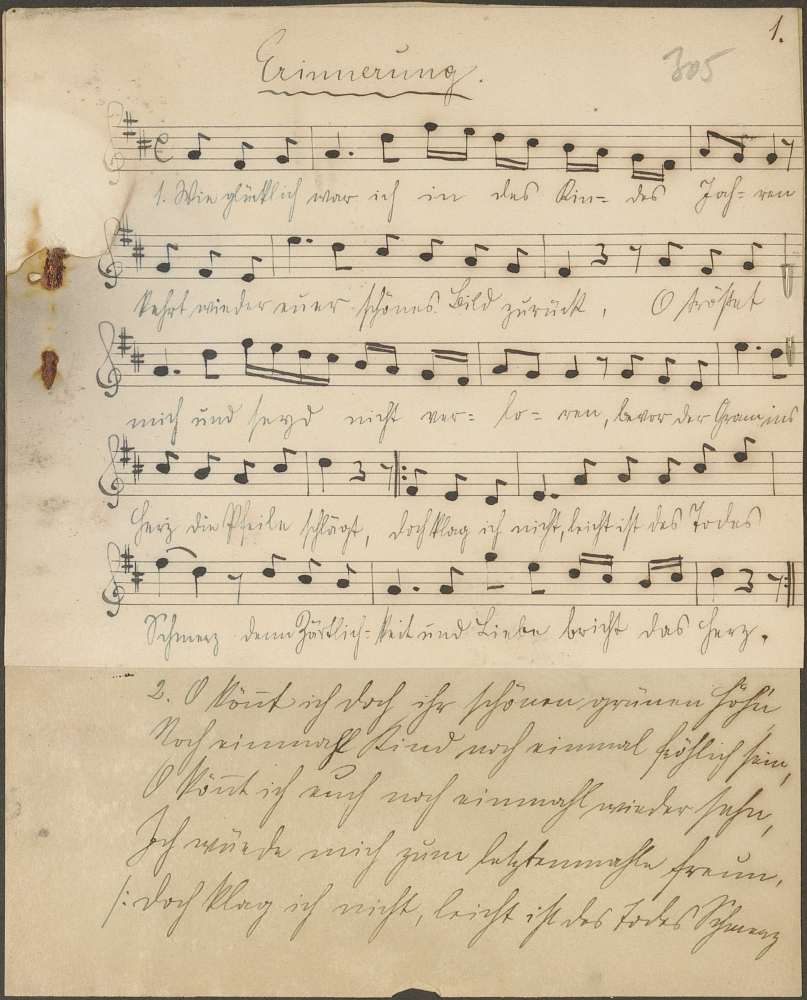 1.
Erinnerung.
305
1. Wie glücklich war ich in des Kin= des Jah= ren
kehrt wieder euer schönes Bild zurück, O tröstet
mich und seyd nicht ver= lo= ren, bevor der Gram ins
Herz die Pfeile schlägt, doch klag ich nicht, leicht ist des Todes
Schmerz denn Zärtlich= keit und Liebe bricht das Herz.
2. O könt ich doch ihr schönen grünen Höhn
Noch einmahl Kind noch einmal fröhlich sein,
O könt ich euch noch einmahl wieder sehn,
Ich würde mich zum letztenmahle freun.
/: doch klag ich nicht, leicht ist des Todes Schmerz